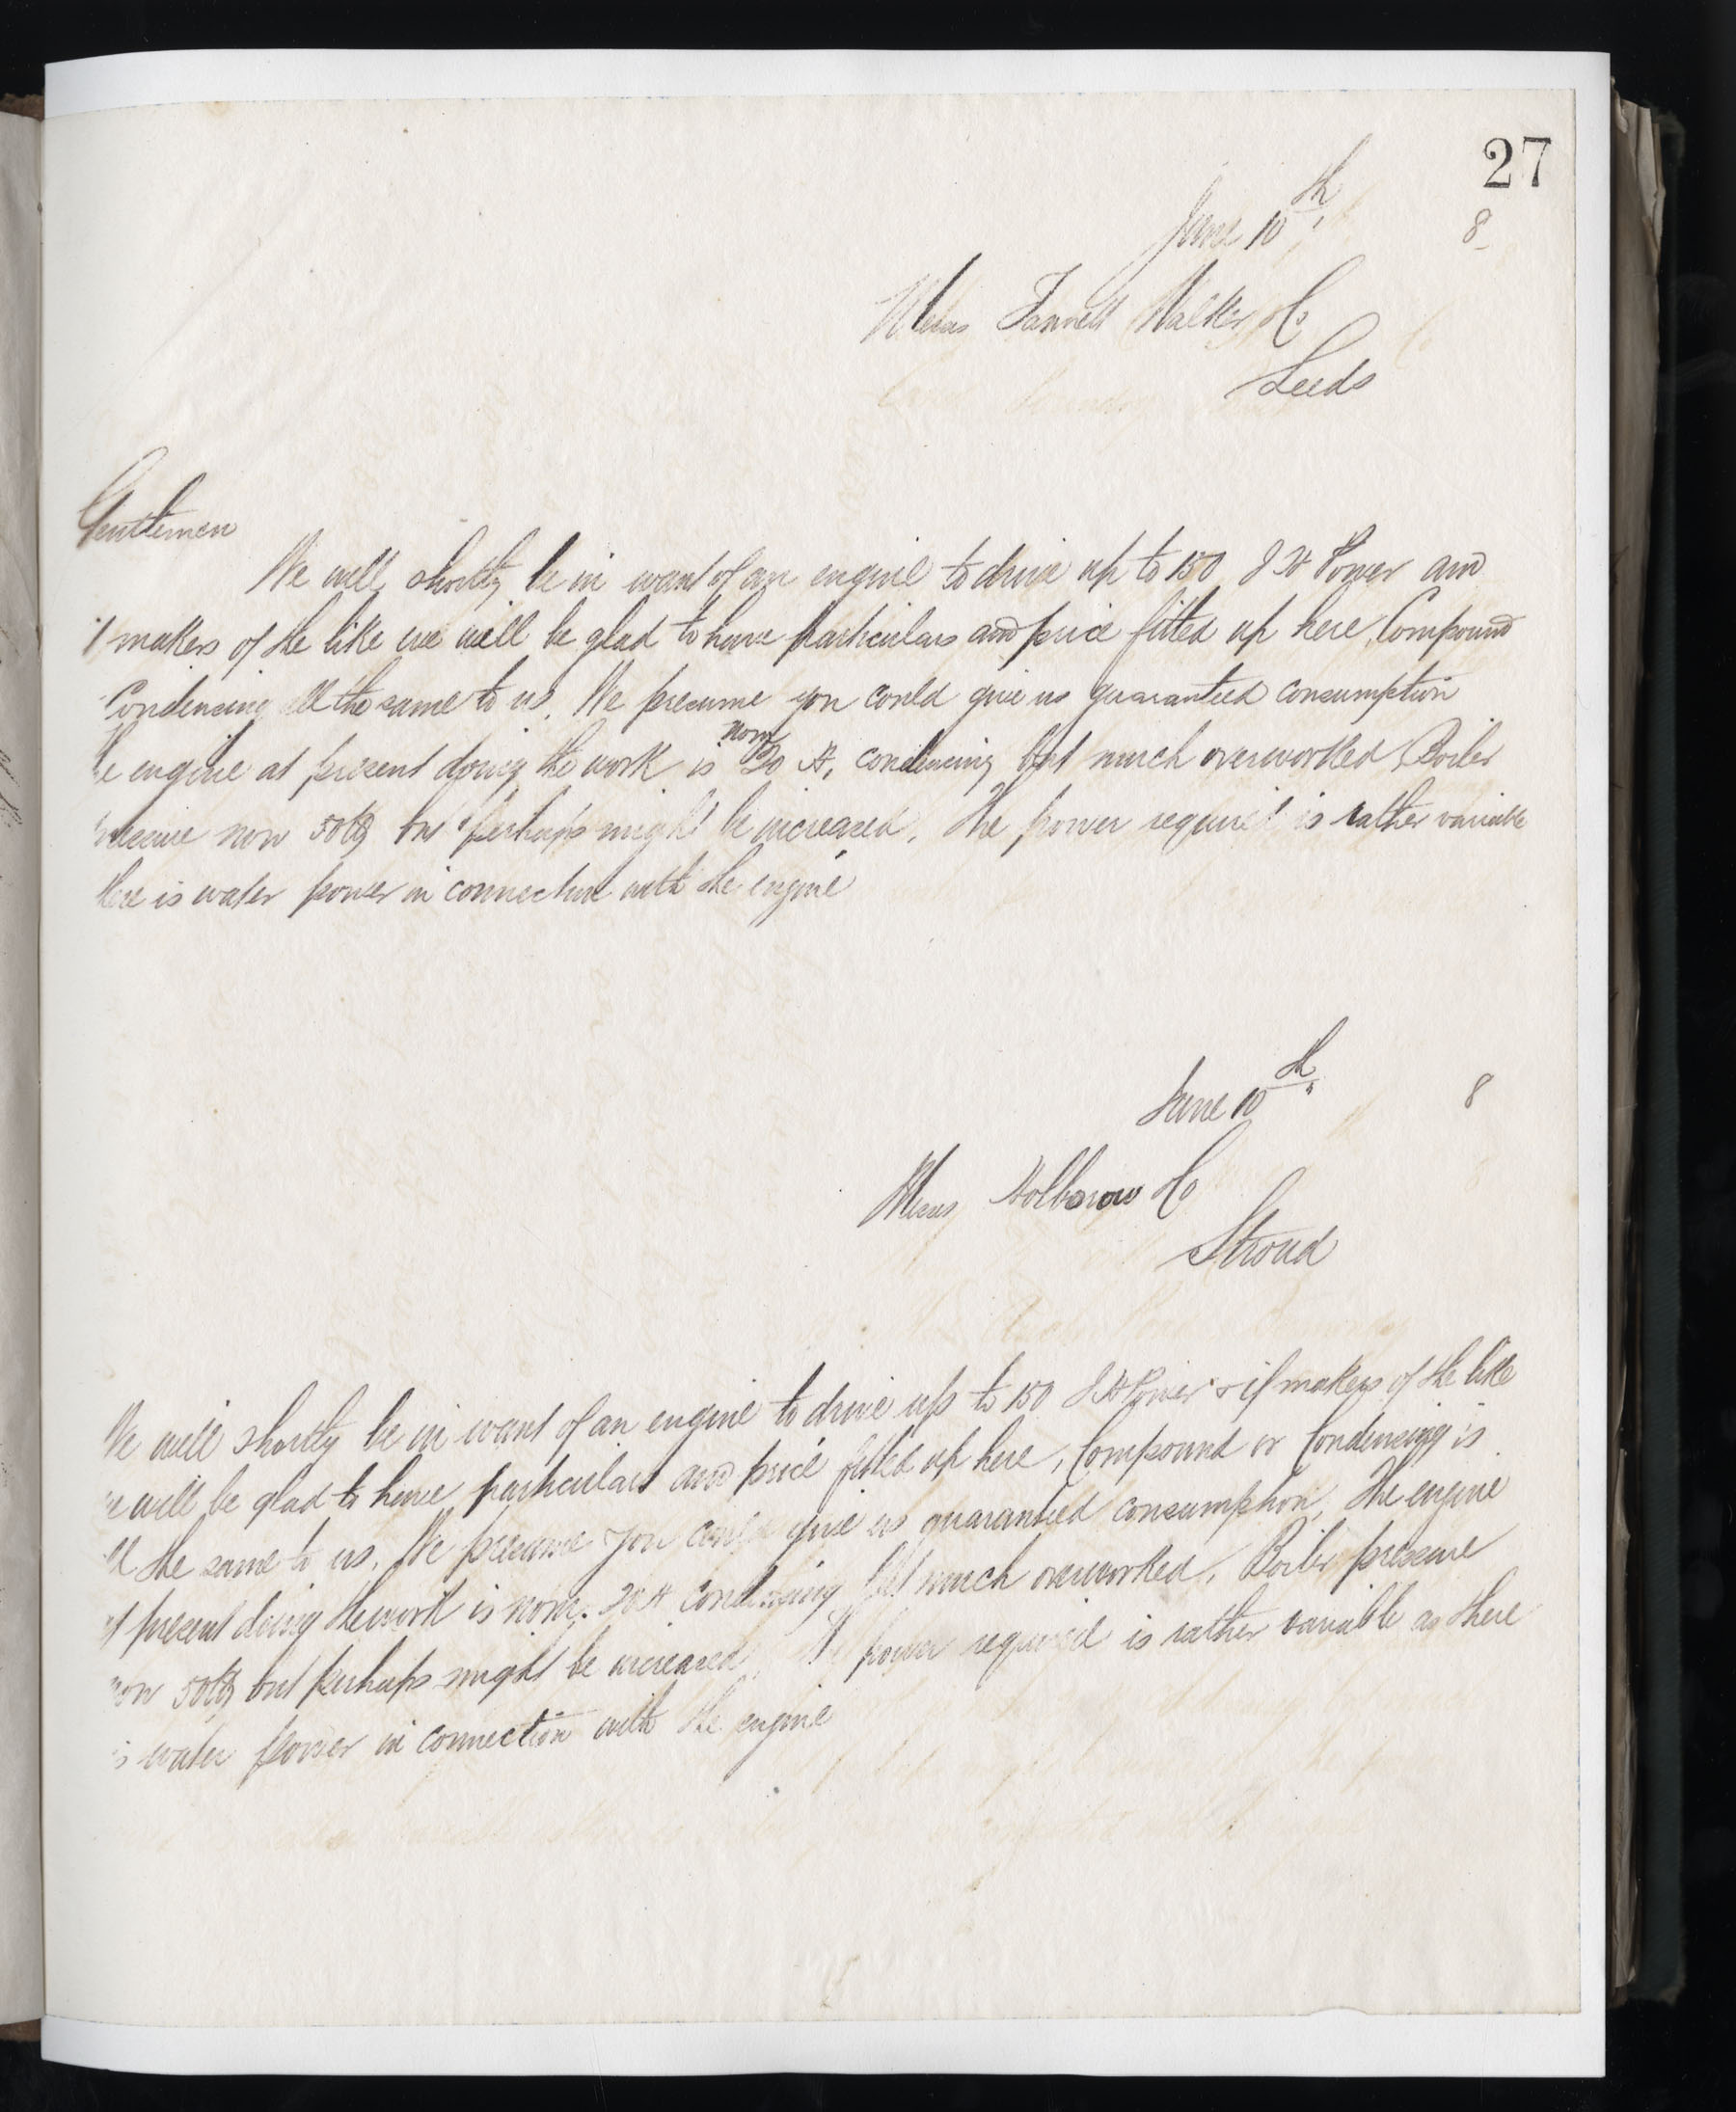 27
June 10th 8
Messrs Walker & Co
Leeds
Gentlemen
We will shortly be in want of an engine to drive up to 150 I H Power and
if makers of the like we will be glad to have particulars and price fitted up here, Compound
Condensing all the same to us. We presume you could give us guaranteed consumption
he engine at present doing the work is nom 20 H, condensing but much overworked, Boiler
pressure now 50 lbs but perhaps might be increased. The power required is rather variable
there is water power in connection with the engine
June 10th 8
Messrs Holborow & Co
Stroud
We will shortly be in want of an engine to drive up to 150 I H Power & if makers of the like
we will be glad to have particulars and price fitted up here, Compound or Condensing is
all the same to us. We presume you could give us guaranteed consumption, The engine
at present doing the work is nom. 20 H condensing but much overworked. Boiler pressure
now 50 lbs but perhaps might be increased. power required is rather variable as there
is water power in connection with the engine